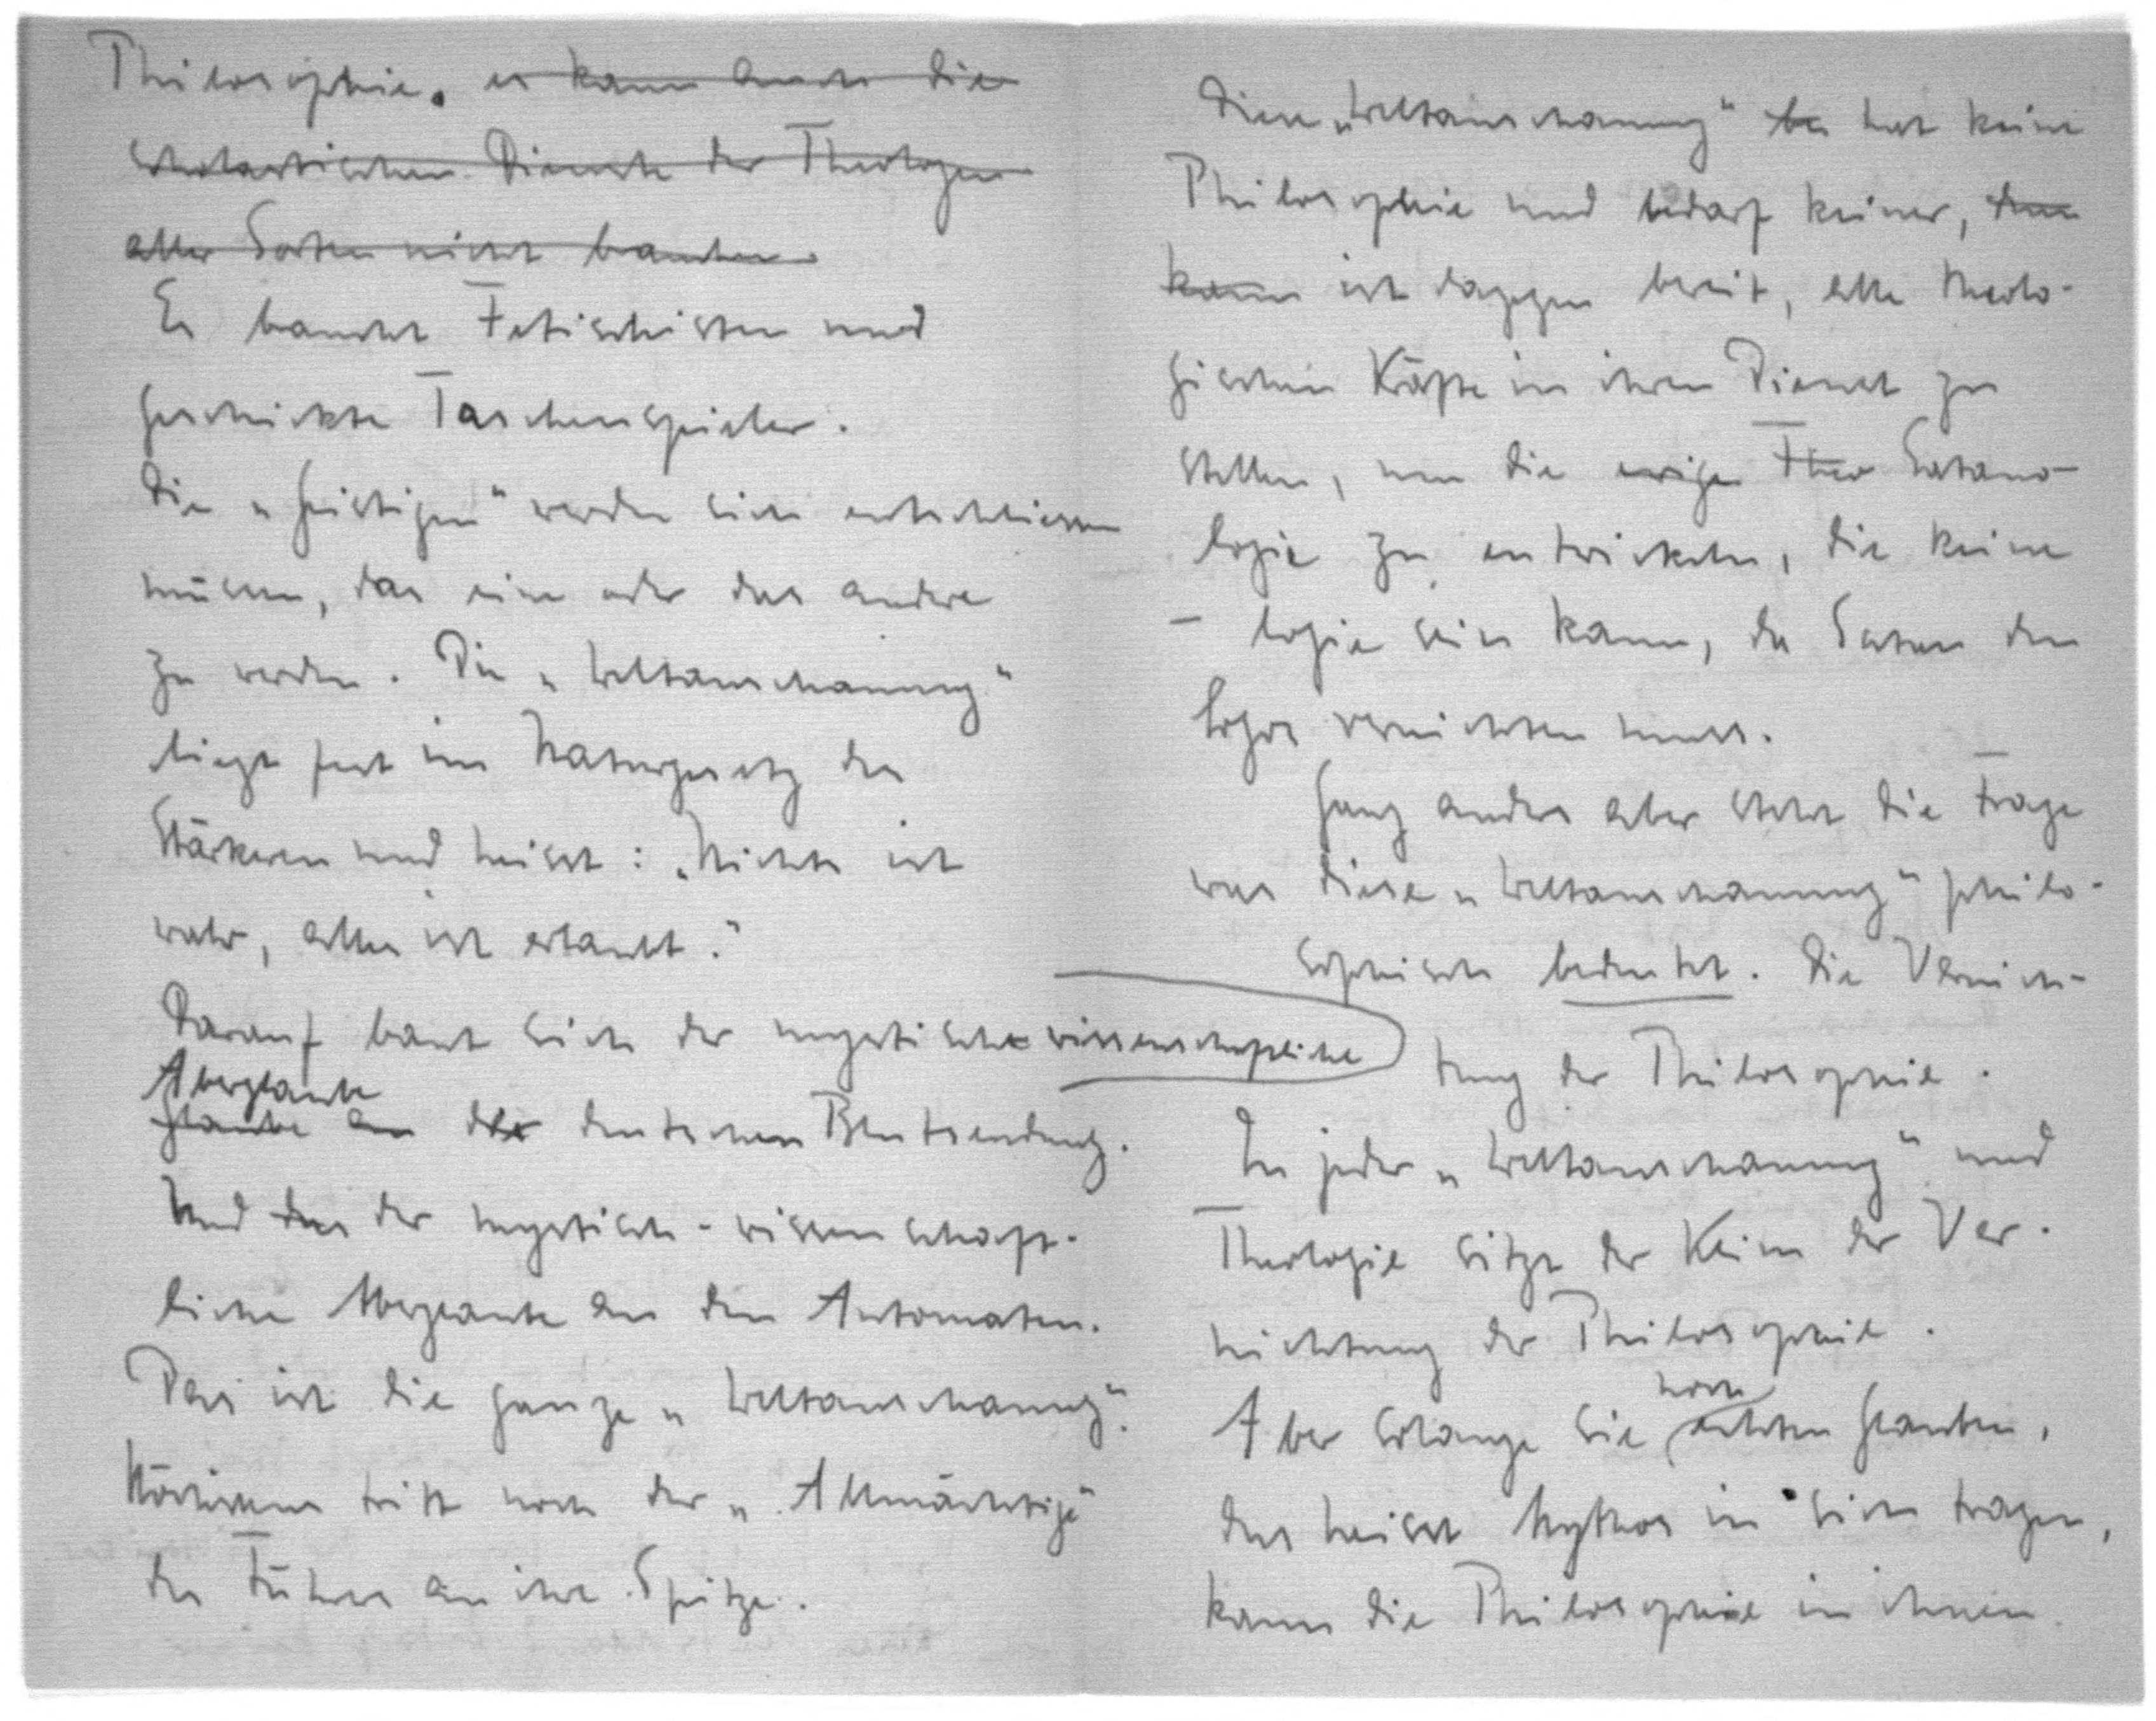 Philosophie. es kann auch die
scholastischen Dienste der Theologen
aller Sorten nicht brauchen.
Er braucht Fetischisten und
geschickte Taschenspieler.
Die „Geistigen" werden sich entschliessen
müssen, das eine oder das andere
zu werden. Die „Weltanschauung"
liegt fest im Naturgesetz des
Stärkeren und heisst: „Nichts ist
wahr, alles ist erlaubt."
Darauf baut sich der mystische wissenschaftliche
Aberglaube
Glaube an der deutschen Blutsendung.
Und das der mystisch-wissenschaft-
liche Aberglaube an den Automaten.
Das ist die ganze „Weltanschauung".
Höchstens tritt noch der „Allmächtige"
des Führers an ihre Spitze.
Diese „Weltanschauung" be hat keine
Philosophie und bedarf keiner, denn
kann ist dagegen bereit, alle theolo-
gischen Kräfte in ihren Dienst zu
stellen, um die ewige Theo Satano-
logie zu entwickeln, die keine
- logie sein kann, da Satan den
Logos vernichten muss.
Ganz anders aber steht die Frage
was diese „Weltanschauung" philo-
sophisch bedeutet. Die Vernich-
tung der Philosophie.
In jeder „Weltanschauung" und
Theologie sitzt der Keim der Ver-
nichtung der Philosophie.
noch
Aber solange sie echten Glauben,
das heisst Mythos in sich tragen,
kann die Philosophie in ihnen